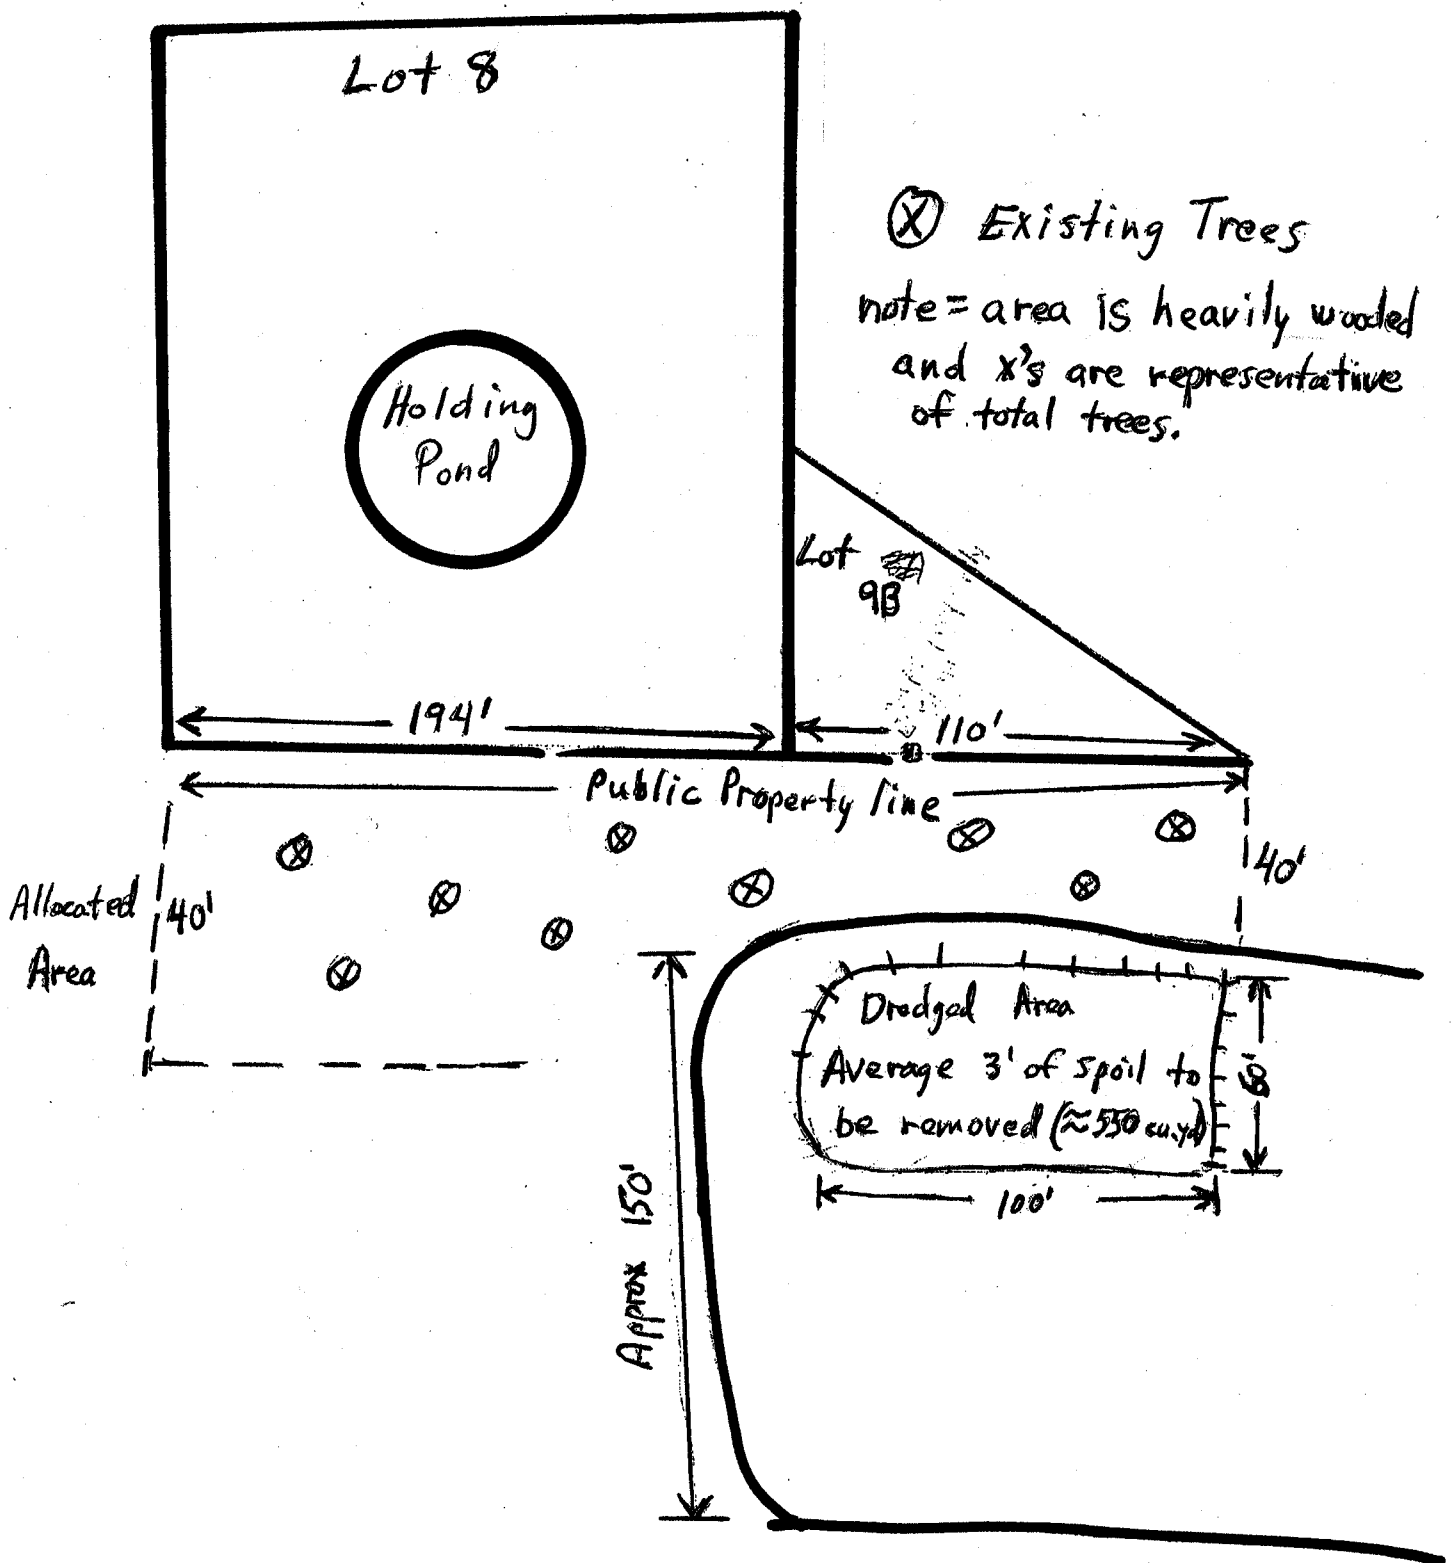 Lot 8
Ⓧ Existing Trees
note = area is heavily wooded
and x's are representative
of total trees.
Holding
Pond
Lot
9B
194'
110'
Public Property line
40'
Allocated
Area
40'
Dredged Area
Average 3' of spoil to
be removed (≈550 cu.yd)
50'
100'
Approx 150'